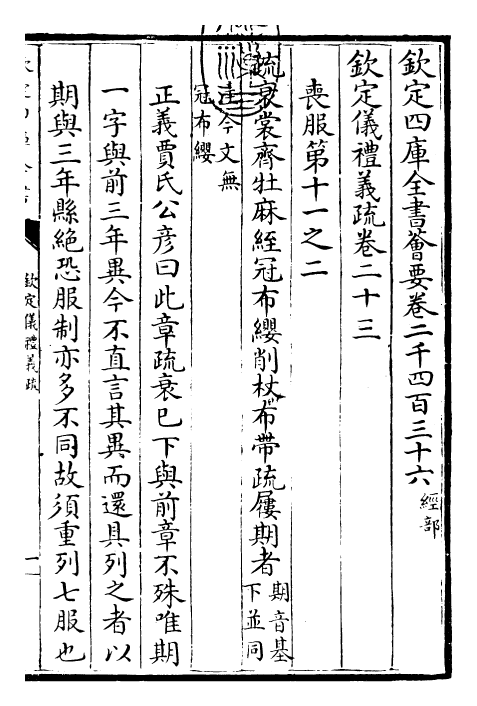 欽定四庫全書薈要卷二千四百三十六 經部
欽定儀禮義疏卷二十三
喪服第十一之二
疏衰裳齊牡麻絰冠布纓削杖布帶疏屨期者 期音基下並同
注今文無冠布纓
正義賈氏公彦曰此章疏衰已下與前章不殊唯期
一字與前三年異今不直言其異而還具列之者以
期與三年縣絶恐服制亦多不同故須重列七服也
欽定儀禮義疏
一